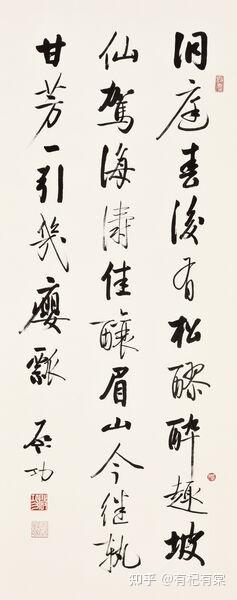 洞庭春後有松醪醉趣坡
仙駕海濤佳釀眉山今继執
甘芳一引幾癭瓢
启功
知乎 @有杞有棠